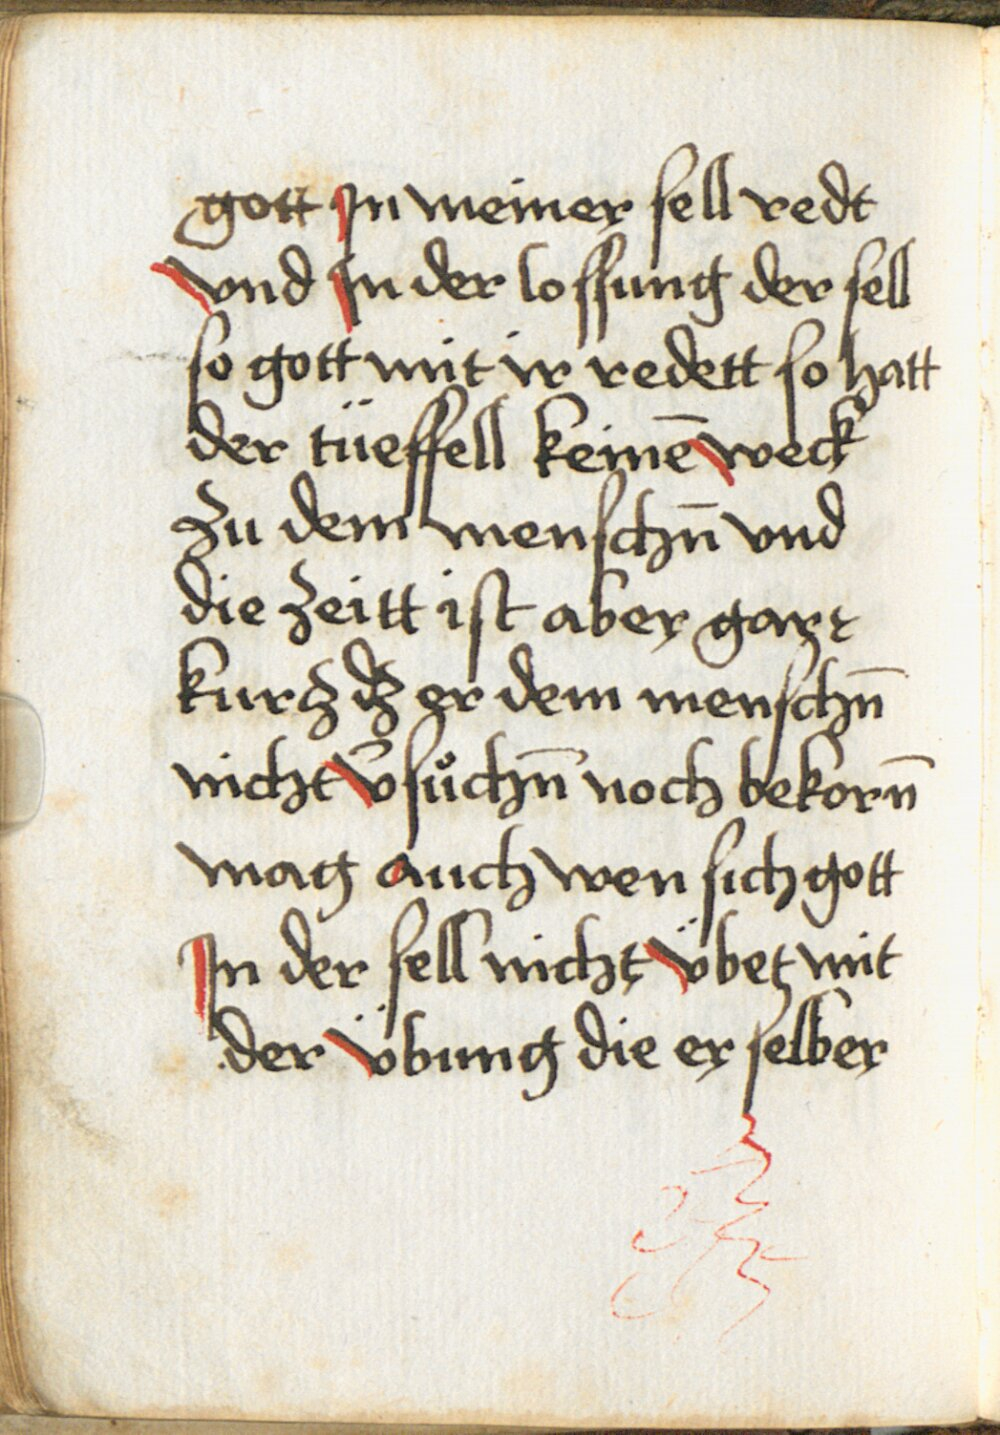 gott Jn meiner sell redt
vnd Jn der lossung der sell
so gott mit ir redett so hatt
der tüeffell keinē weck
zu dem menschn̄ vnd
die zeitt ist aber garr
kurcz dz er dem menschn̄
nicht v̄sůchn̄ noch bekorn̄
mag auch wen sich gott
Jn der sell nicht v̈bet mit
der v̈bung die er selber